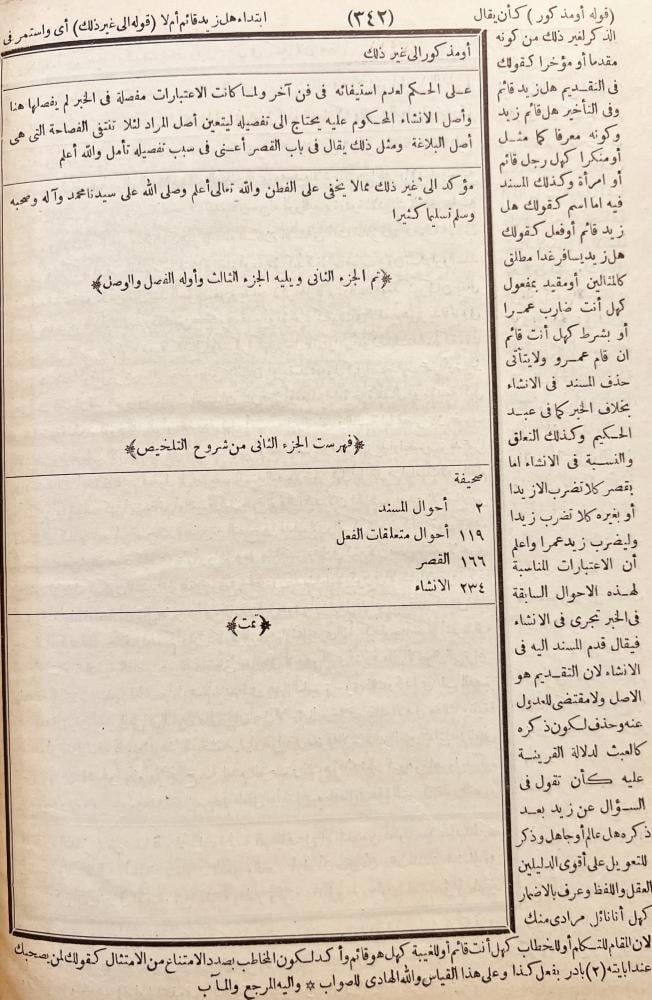 (قوله أو مذكور) كأن يقال
(٣٤٢)
ابتداء هل زيد قائم أم لا (قوله الى غير ذلك) أى واستمر فى
الذكر لغير ذلك من كونه
مقدما أو مؤخرا كقولك
فى التقديم هل زيد قائم
وفى التأخير هل قائم زيد
وكونه معرفا كما مثل
أو منكرا كهل رجل قائم
أو امرأة وكذلك المسند
فيه اما اسم كقولك هل
زيد قائم أو فعل كقولك
هل زيد يسافر غدا مطلق
كالمثالين أو مقيد بمفعول
كهل أنت ضارب عمرا
أو بشرط كهل أنت قائم
ان قام عمرو ولا يتأتى
حذف المسند فى الانشاء
بخلاف الخبر كما فى عبد
الحكيم وكذلك التعلق
والنسبة فى الانشاء اما
بقصر كلا تضرب الا زيدا
أو بغيره كلا تضرب زيدا
وليضرب زيد عمرا واعلم
أن الاعتبارات المناسبة
لهذه الاحوال السابقة
فى الخبر تجرى فى الانشاء
فيقال قدم المسند اليه فى
الانشاء لان التقديم هو
الاصل ولا مقتضى للعدول
عنه وحذف لكون ذكره
كالعبث لدلالة القرينة
عليه كأن تقول فى
السؤال عن زيد بعد
ذكره هل عالم أو جاهل وذكر
للتعويل على أقوى الدليلين
العقل واللفظ وعرف بالاضمار
كهل أنا نائل مرادى منك
أو مذكور الى غير ذلك
على الحكم لعدم استيفائه فى فن آخر ولما كانت الاعتبارات مفصلة فى الخبر لم يفصلها هنا
وأصل الانشاء المحكوم عليه يحتاج الى تفصيله ليتعين أصل المراد لئلا تنتفى الفصاحة التى هى
أصل البلاغة ومثل ذلك يقال فى باب القصر أعنى فى سبب تفصيله تأمل والله أعلم
مؤكد الى غير ذلك مما لا يخفى على الفطن والله تعالى أعلم وصلى الله على سيدنا محمد وآله وصحبه
وسلم تسليما كثيرا
﴿تم الجزء الثانى ويليه الجزء الثالث وأوله الفصل والوصل﴾
﴿فهرست الجزء الثانى من شروح التلخيص﴾
صحيفة
٢ أحوال المسند
١١٩ أحوال متعلقات الفعل
١٦٦ القصر
٢٣٤ الانشاء
﴿تمت﴾
لان المقام للتكلم أو للخطاب كهل أنت قائم أو للغيبة كهل هو قائم وأكد لكون المخاطب بصدد الامتناع من الامتثال كقولك لمن يصحبك
عند ابايته (٢) بادر بفعل كذا وعلى هذا القياس والله الهادى للصواب * واليه المرجع والمآب